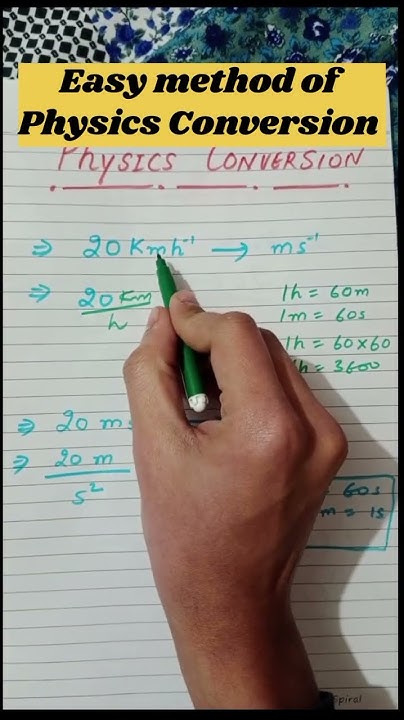 Easy method of
Physics Conversion
PHYSICS CONVERSION
⇒ 20 Kmh⁻¹ → ms⁻¹
⇒ 20 Km
h
1h = 60m
1m = 60s
1h = 60×60
h = 3600
⇒ 20 m
⇒ 20 m
s²
= 60s
m = 1s
Spiral